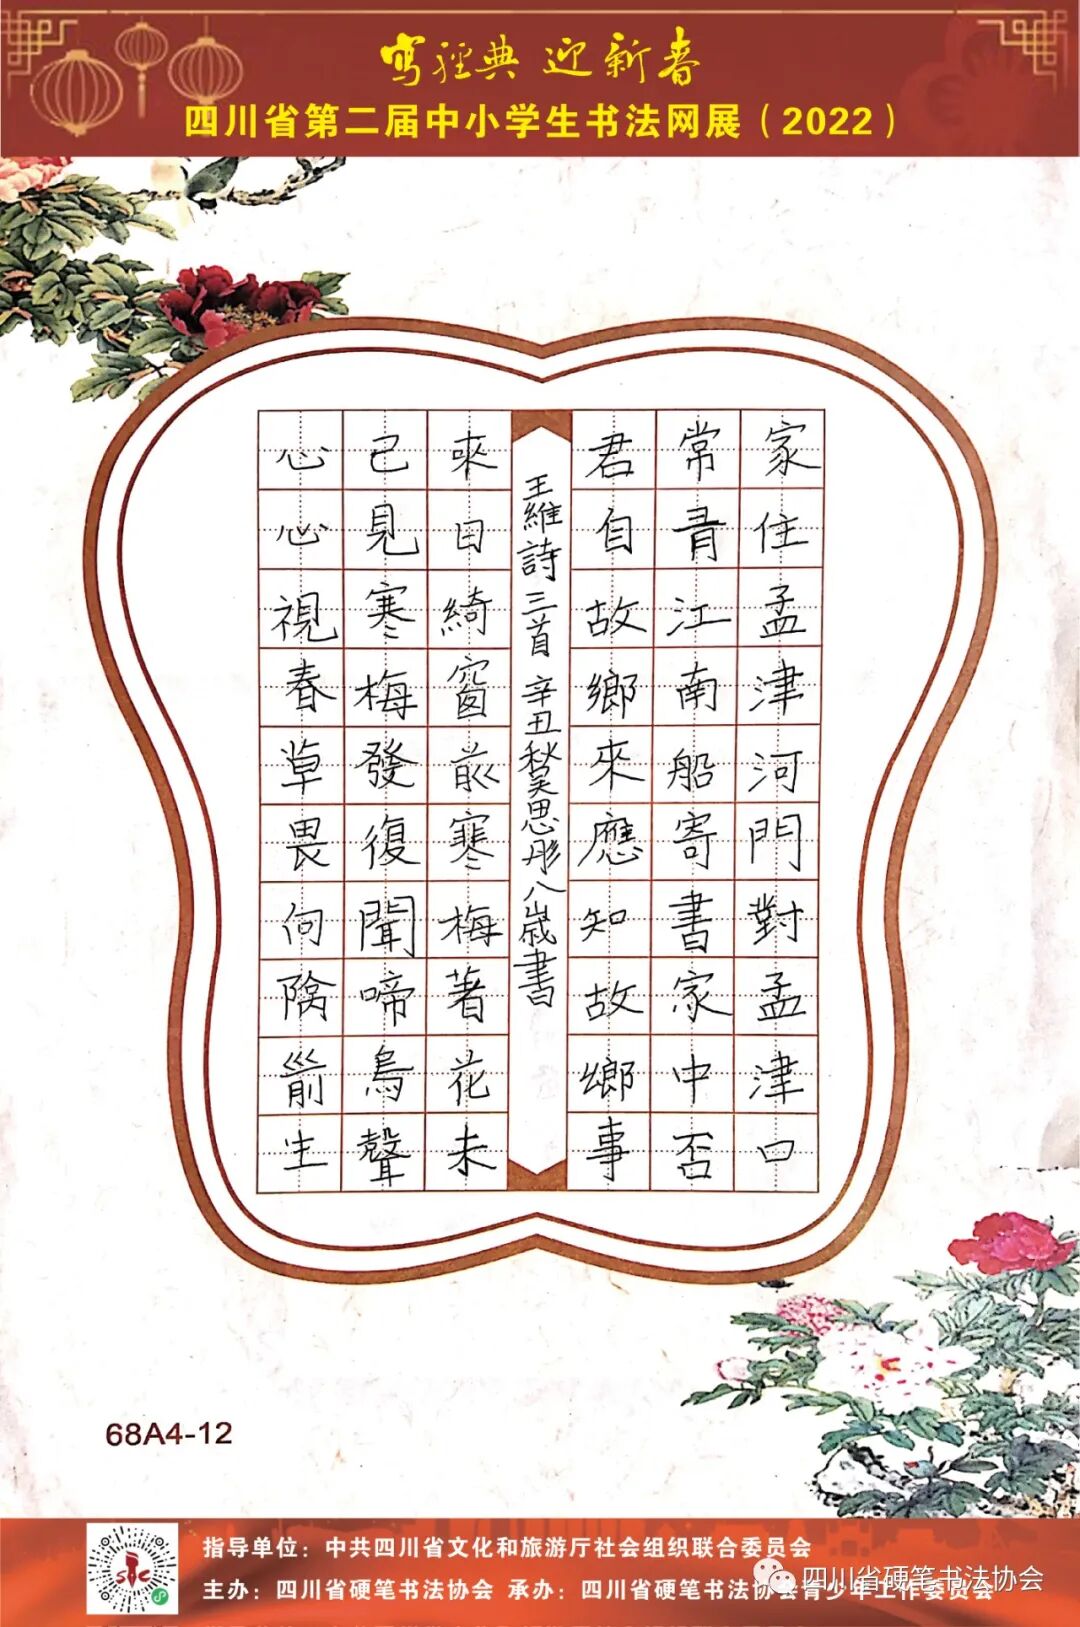 寫經典 迎新春
四川省第二届中小学生书法网展（2022）
家住孟津河門對孟津口
常有江南船寄書家中否
君自故鄉來應知故鄉事
王維詩三首 辛丑秋吴思彤八歲書
來日綺窗前寒梅著花未
己見寒梅發復聞啼鳥聲
心心視春草畏向階前生
68A4-12
指导单位：中共四川省文化和旅游厅社会组织联合委员会
主办：四川省硬笔书法协会 承办：四川省硬笔书法协会青少年工作委员会
四川省硬笔书法协会